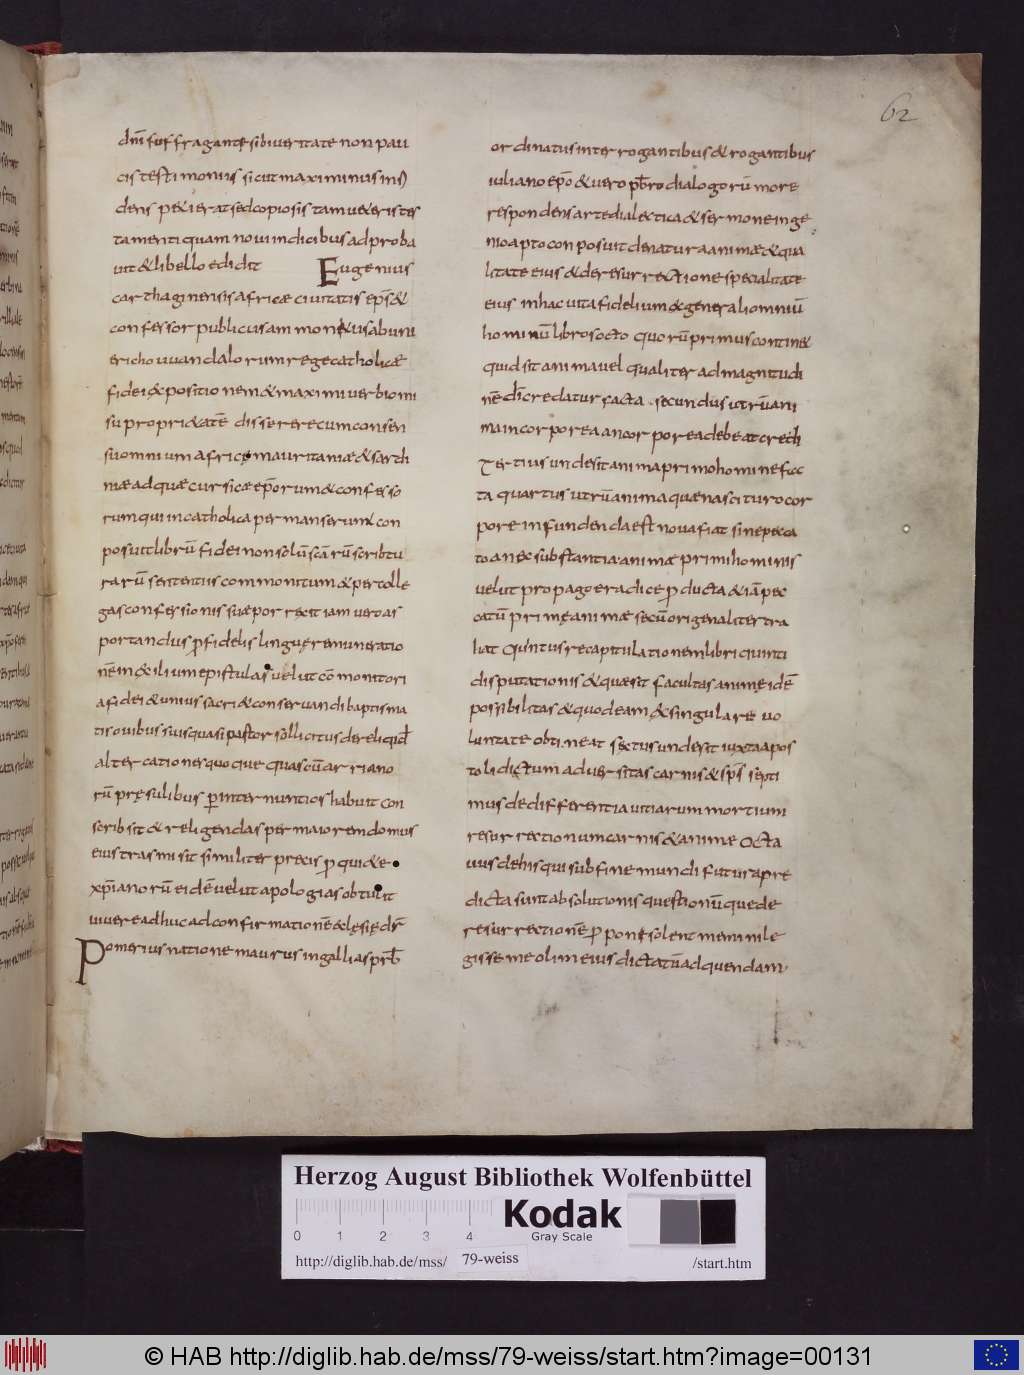 62
dnī suffragante sibi veritate non pau
cis testimoniis sicut maximinus ins
dens p&ierat sed copiosis tam veteris tes
tamenti quam novi indicibus adproba
vit & libello edidit Eugenius
carthaginensis africæ civitatis epīs &
confessor publicus ammon&us ab uni
ericho uuandalorum rege catholicæ
fidei expositionem & maximi verbi omi
su propri&atē disserere cum consen
su omnium africę mauritaniæ & sardi
niæ adquæ cursicæ ep̄orum & confesso
rum qui in catholica permanserunt con
posuit librū fidei non solū scārū scribtu
rarū sententiis commonitum & per colle
gas confessionis suæ porrexit iam vero as
portandus p̄ fidelis linguę remuneratio
nēm exilium epistulas velut cōmonitori
a fidei & unius sacri & conservandi baptisma
tis ovibus suis quasi pastor sollicitus dereliqid̄
altercationes quoque quas cū arriano
rū pręsulibus p̄ internuntios habuit con
scribsit & religendas per maiorem domus
eius trasmisit similiter precis p̄ qui&e
xp̄ianorū eidē velut apologias obtulit
vivere adhuc ad confirmationē eclęsię dr̄
Pomerius natione maurus in gallias pr̄b
ordinatus interrogantibus & rogantibus
iuliano ep̄o & vero pb̄ro dialogorū more
respondens arte dialectica & sermone inge
nio apto conposuit de natura animæ & qua
litate eius & de resurrectione specialitate
eius in hac vita fidelium & generali omniū
hominū libros octo quorū primus contin&
quid sit anima vel qualiter ad magnitudi
nē dī credatur facta secundus utrū ani
ma incorporea an corporea debeat credi
Tertius unde sit anima primo homine fac
ta quartus utrū anima quæ nascituro cor
pore infundenda est nova fiat sine pecca
to an ec substantia animæ primi hominis
velut propago e radice p̄ducta & iā pec
catū primę animæ secū originaliter tra
hat Quintus recapitulationem libri quinti
disputationis & quæsit facultas animę idē
possibilitas & quod eam & singulare vo
luntate obtineat sextus unde sit iuxta apos
toli dictum adversitas carnis & sp̄s septi
mus de differentia vitiarum mortium
resurrectionum carnis & animæ Octa
vus de his qui sub fine mundi futura præ
dicta sunt absolutionis questionū que de
resurrectionē p̄poni solent memini le
gisse me olim eius dictatū ad quendam
Herzog August Bibliothek Wolfenbüttel
0 1 2 3 4
Kodak
Gray Scale
http://diglib.hab.de/mss/ 79-weiss /start.htm
© HAB http://diglib.hab.de/mss/79-weiss/start.htm?image=00131